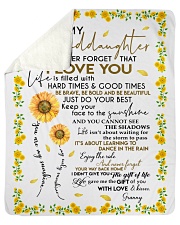 MY
ddaughter
ER FORGET THAT
I LOVE YOU
life is filled with
HARD TIMES & GOOD TIMES
BE BRAVE, BE BOLD AND BE BEAUTIFUL
JUST DO YOUR BEST
Keep your
face to the sunshine
AND YOU CANNOT SEE
THE SHADOWS
Life isn't about waiting for
the storm to pass
IT'S ABOUT LEARNING TO
DANCE IN THE RAIN
Enjoy the ride
And never forget
YOUR WAY BACK HOME
I DIDN'T GIVE YOU The gift of life
Life gave me the GIFT OF YOU
WITH LOVE & kisses
Granny
you are my sunshine